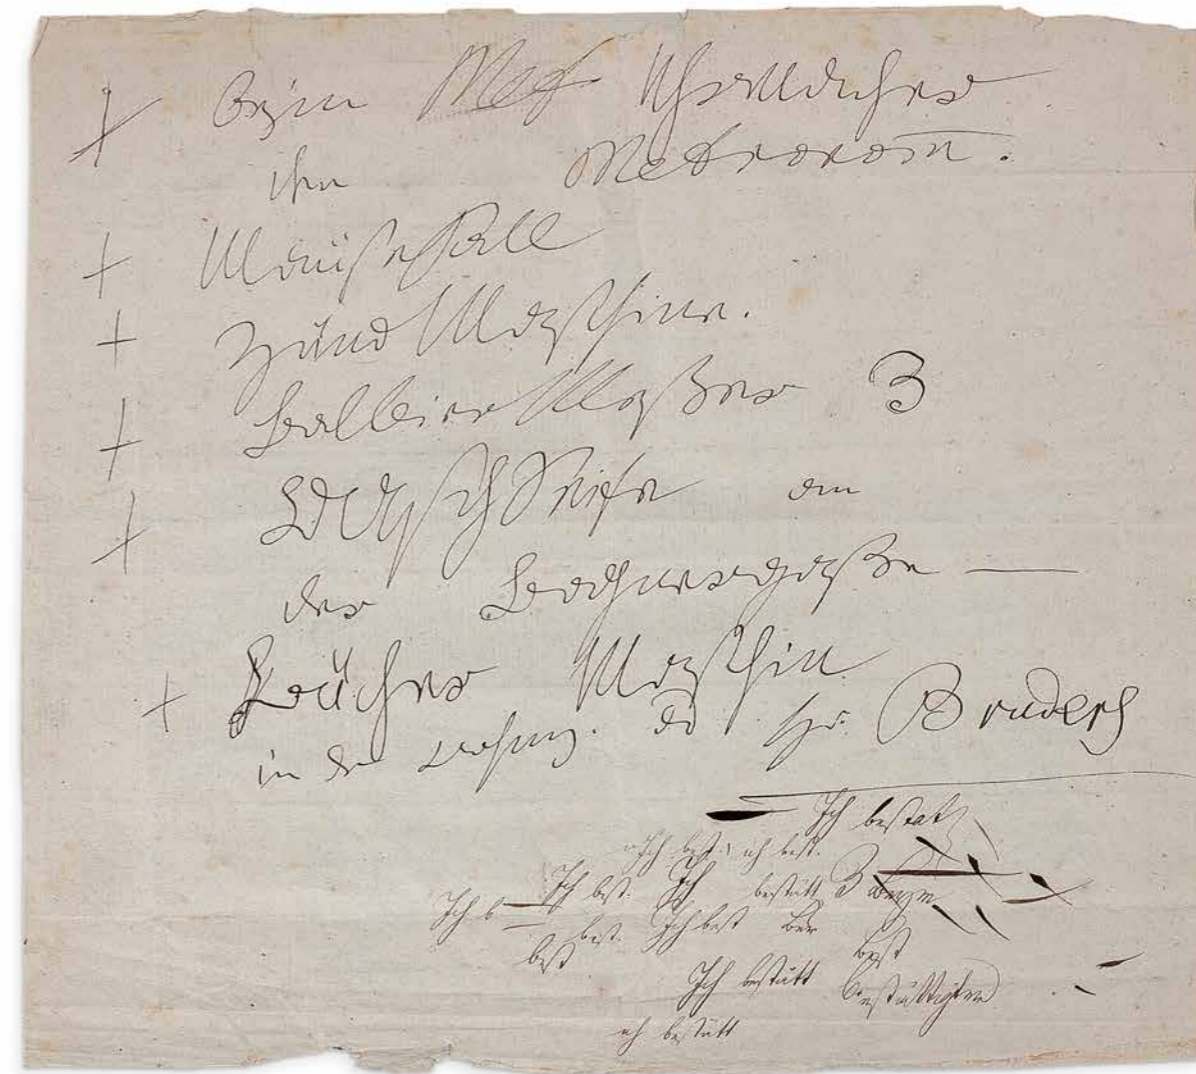 + beym Met Uhrmacher
ihn Metronom.
+ Mäusefall
+ Zünd Maschine.
+ Balbier Meßer 3
+ Wasch Seife an
der Bognergaße —
+ Bücher Maschin
in der wohng. Hr. Bruders
Ich bestat
Ich best. ich best.
Ich b Ich best. Ich bestätt 3 beym
best. Ich best
best best
Ich bestätt
ich bestätt